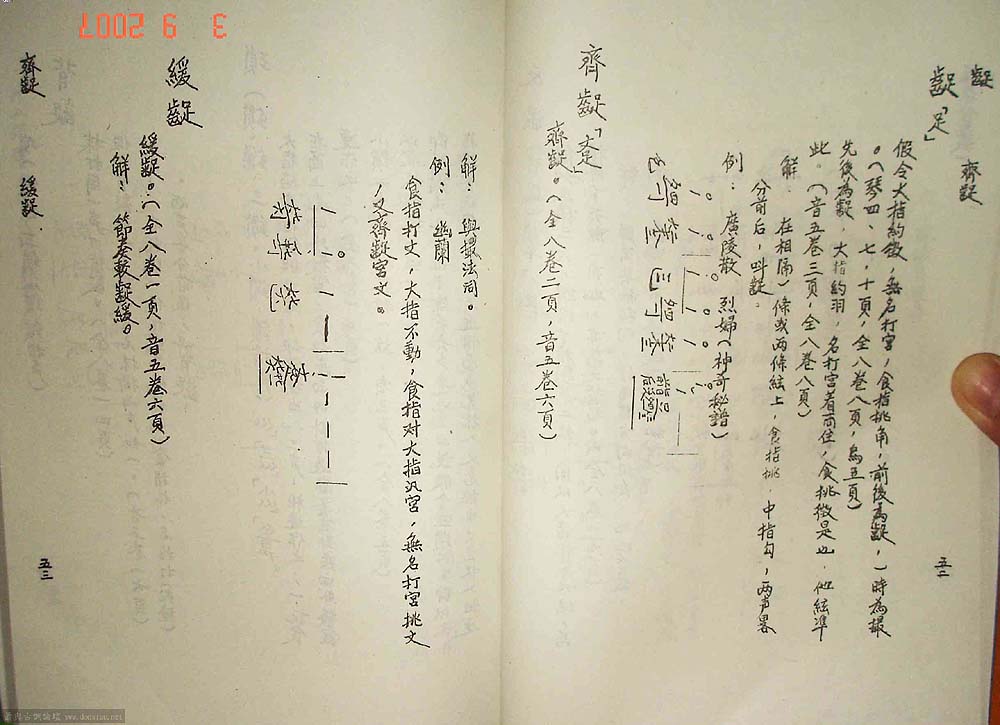 齪
齊齪
齪「足」
假令大指約徵，無名打宮，食指挑角，前後為齪，一時為撮
。（琴四、七，十頁，全八卷八頁，烏五頁）
先後為齪，大指約羽，名打宮着而住，食挑徵是也．他絃準
此。（音五卷三頁，全八卷八頁）
解： 在相隔一條或两條絃上，食指挑，中指勾，两声畧
分前后，叫齪。
例： 廣陵散 烈婦（神奇秘譜）
五二
齊齪
齊齪。（全八卷二頁，音五卷六頁）
解： 與撮法同。
例： 幽蘭
食指打文，大指不動，食指对大指汎宮，無名打宮挑文
，又齊齪宮文。
緩齪
緩齪。（全八卷一頁，音五卷六頁）
解： 節奏較齪緩。
齊齪
緩齪
五三
3 9 2007
www.donxrau.net